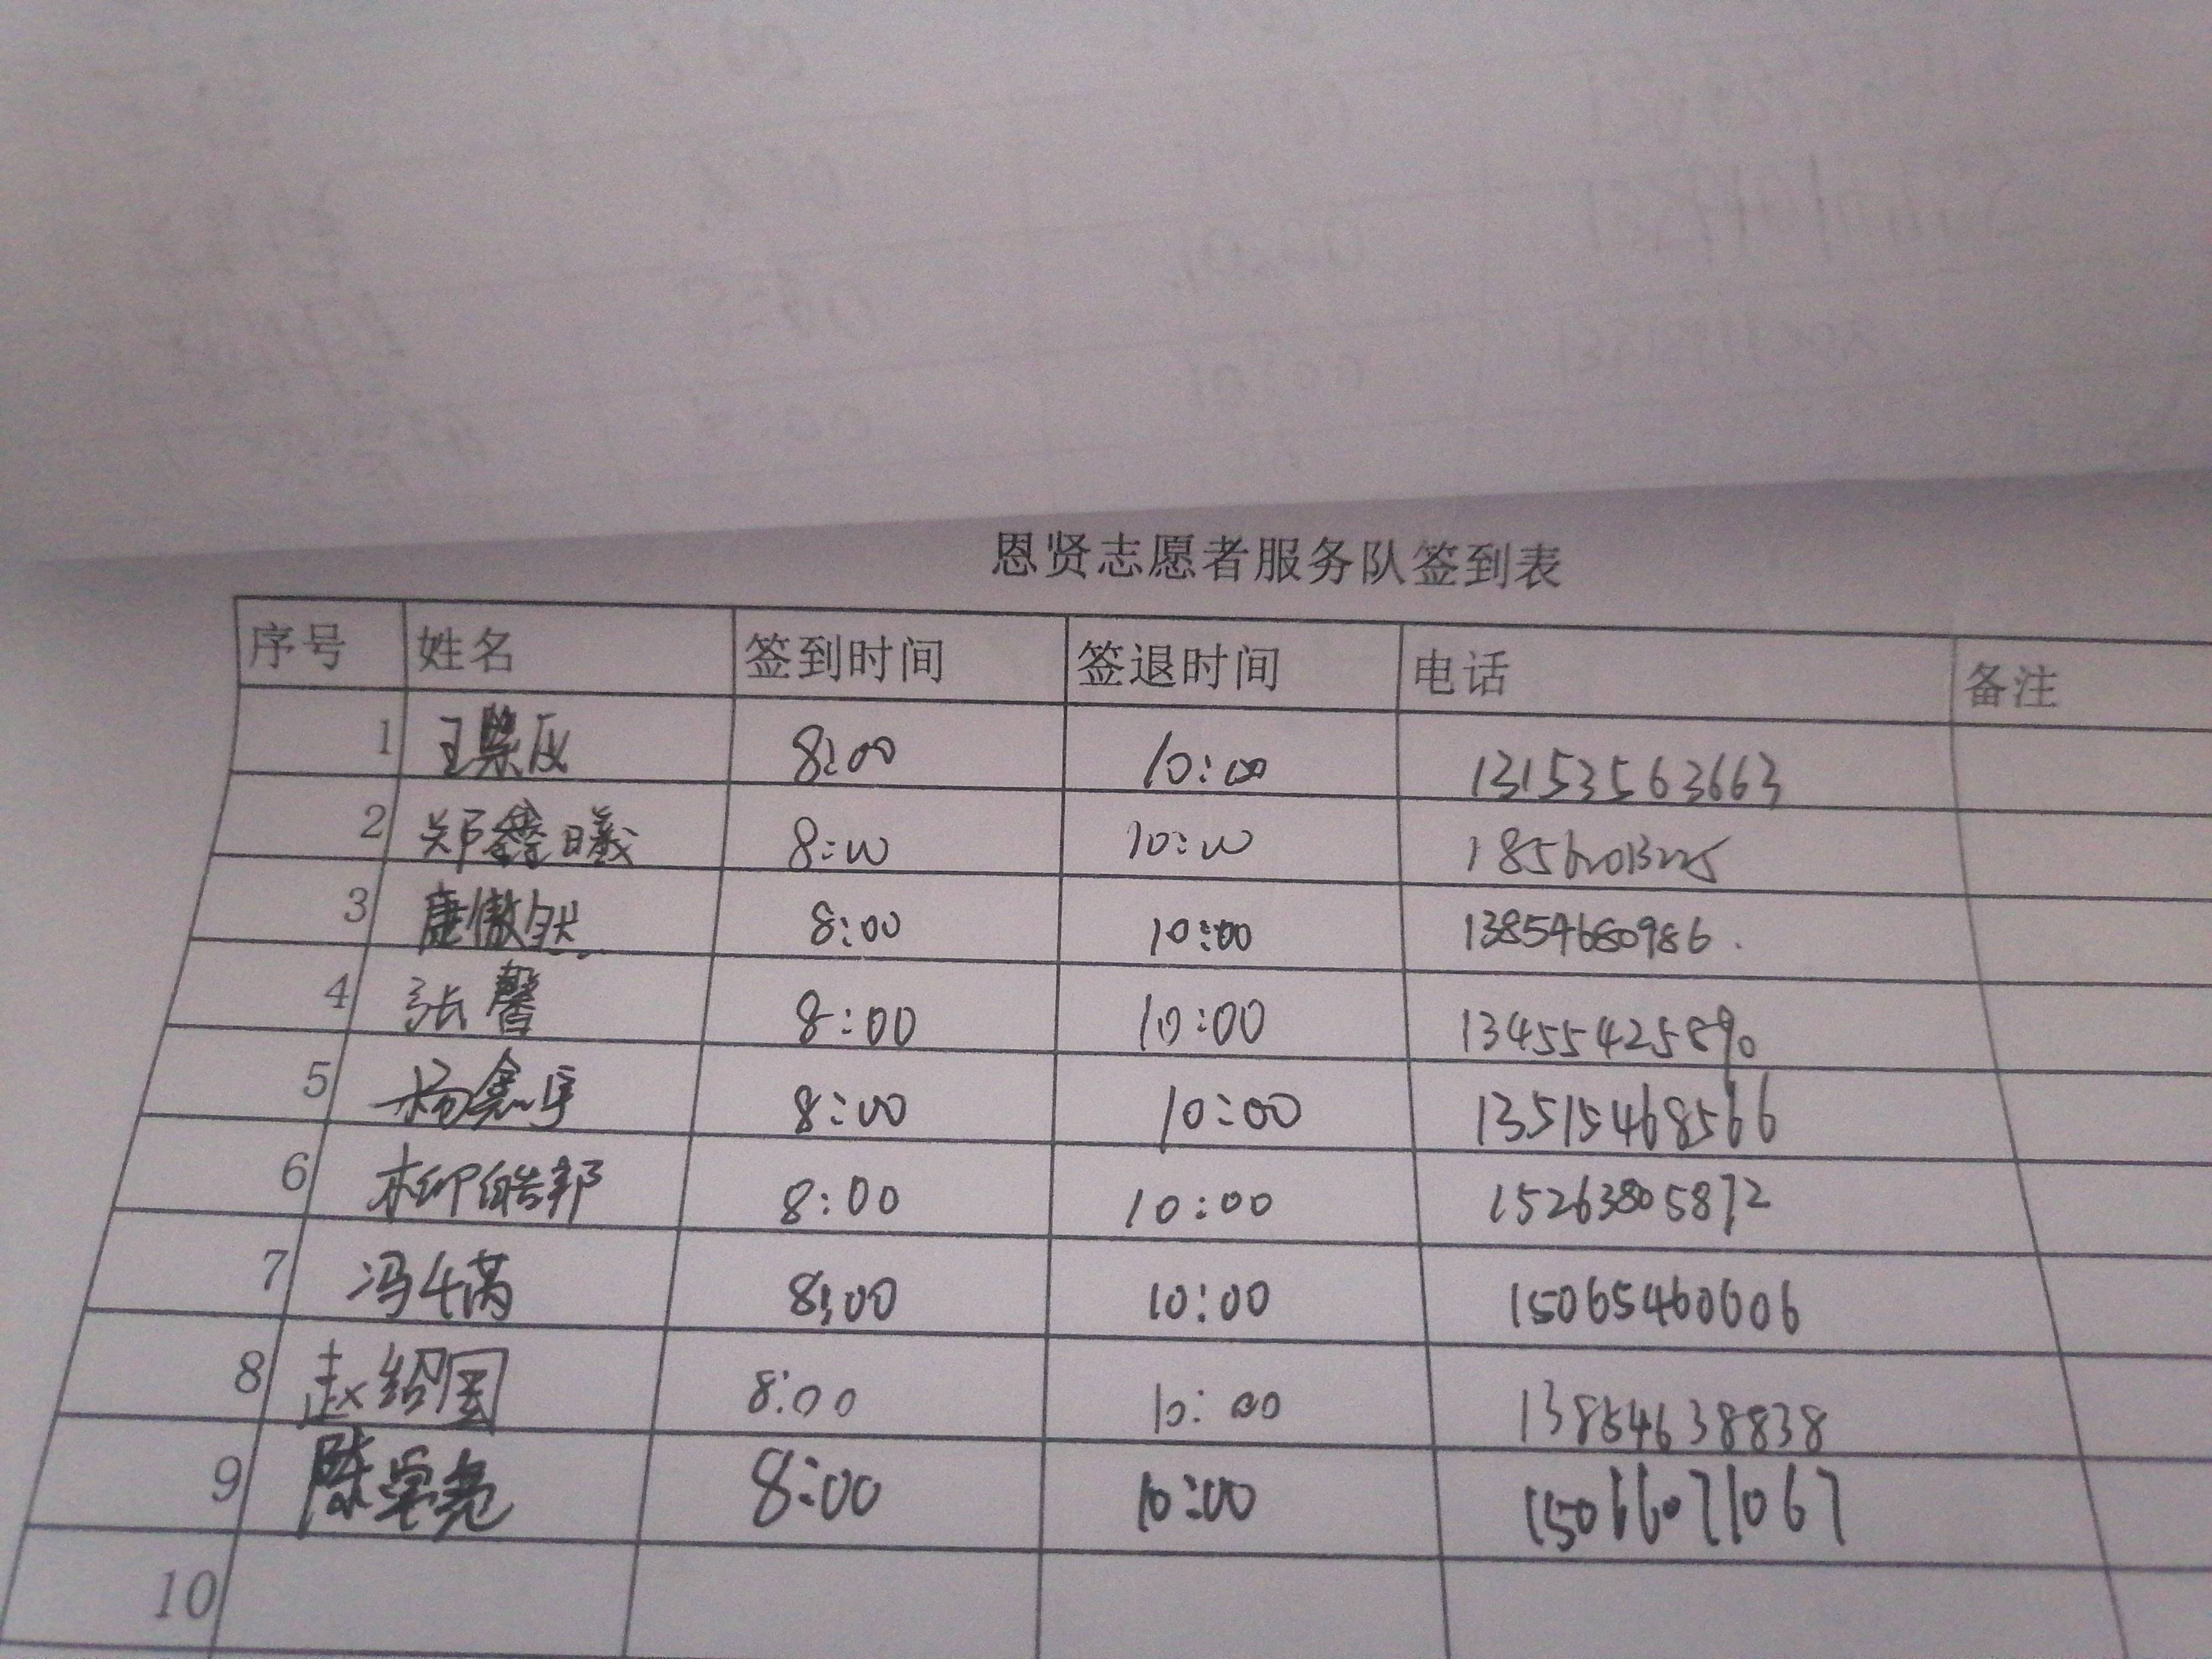 恩贤志愿者服务队签到表
序号 姓名 签到时间 签退时间 电话 备注
1 8:00 10:00 13153563663
2 郑鑫曦 8:00 10:00
3 康傲然 8:00 10:00 13854680986.
4 张馨 8:00 10:00 13455425890
5 杨鑫宇 8:00 10:00 13515468566
6 柳皓邦 8:00 10:00 15263805872
7 冯 8:00 10:00 15065460606
8 赵绍国 8:00 10:00 13854638838
9 陈 亮 8:00 10:00 15066071067
10